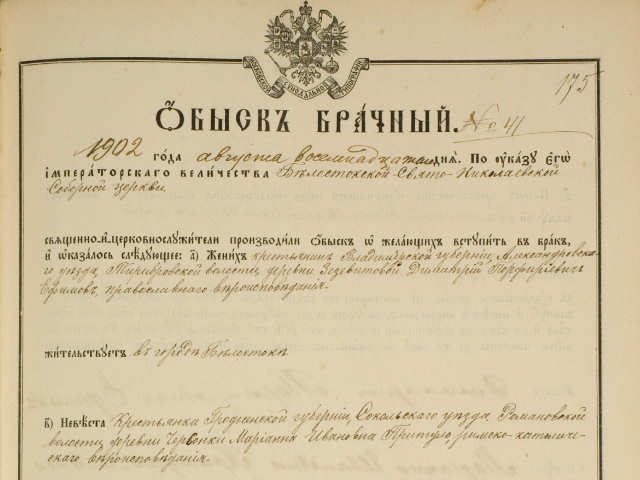 МОСКОВСКОЙ СѴНОДАЛЬНОЙ ТИПОГРАФІИ
175
Ѻ҆БЫСКЪ БРА́ЧНЫЙ. № 41
1902 го́да августа восемнадцатаго дня. По ᲂу҆ка́зу є҆гѡ̀
і҆мпера́торскаго вели́чества Бѣлостокской Свято-Николаевской
Соборной церкви
свѧщенно-и҆-церковнослꙋжи́тели производи́ли ѻ҆́быскъ ѡ҆ жела́ющихъ встꙋпи́ть въ бра́къ,
и҆ ѡ҆каза́лось слѣ́дꙋющее: а҃) Жени́хъ крестьянинъ Владимірской губерніи, Александровска-
го уѣзда, волости, деревни Димитрій Порфирьевичъ
Ефимовъ, православнаго вѣроисповѣданія.
жи́тельствꙋетъ въ городѣ Бѣлостокѣ
в҃) Невѣ́ста Крестьянка Гродненской губерніи, Сокольскаго уѣзда, Романовской
волости, деревни Червонки Маріанна Ивановна Притуло, римско-католиче-
скаго вѣроисповѣданія.